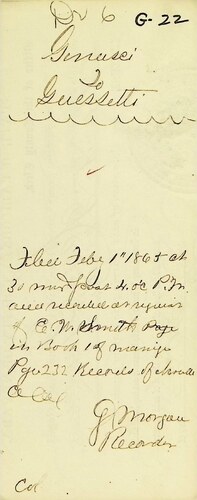 Dr 6 G-22
Genasci
To
Guessetti
Filed Feby 1st 1865 at
30 min past 4. oc P.M
and recorded at request
of E. W. Smith Page
in Book 1 of marige
Pge 232 Records of
Co Cal
G Morgan
Recorder
Col